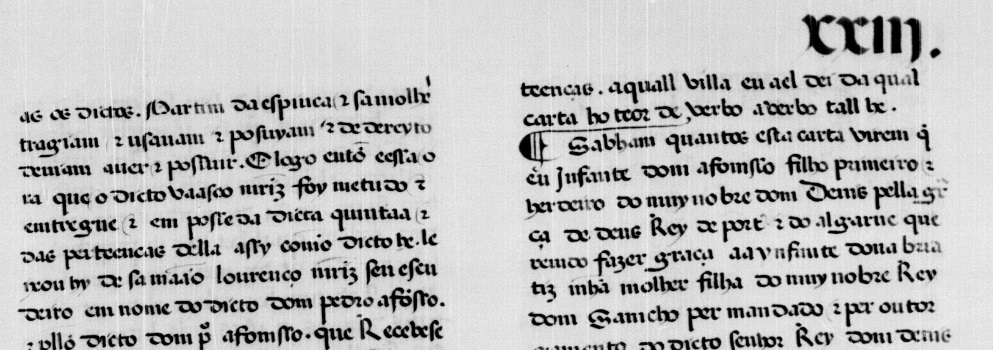 xxiij.
as os dictos. Martim da espiuca ⁊ sa molhr̃
tragiam ⁊ usauam ⁊ posuyam ⁊ de dereyto
deuiam auer ⁊ posuir. E logo entõ eessa o
ra que o dicto vaasco mriz foy metudo ⁊
entregue ⁊ em posse da dicta quintaa ⁊
das perteencas della assy como dicto he. le
uou hy de sa maão lourenço mriz seu escu
deiro em nome do dicto dom pedro afõsso.
⁊ pllo dicto dom pº afomsso. que Recebese
teenças. a quall villa eu a el dei da qual
carta ho teor de verbo a verbo tall he.
¶ Sabham quantos esta carta virem q̃
eu Jnfante dom afomsso filho primeiro ⁊
herdeiro do muy nobre dom Denis pella gr̃
ça de deus Rey de port̃ ⁊ do algarue que
rendo fazer graça aa ynfante dona bria
tiz mha molher filha do muy nobre Rey
dom Sancho per mandado ⁊ per outor
gamento do dicto senhor Rey dom denis